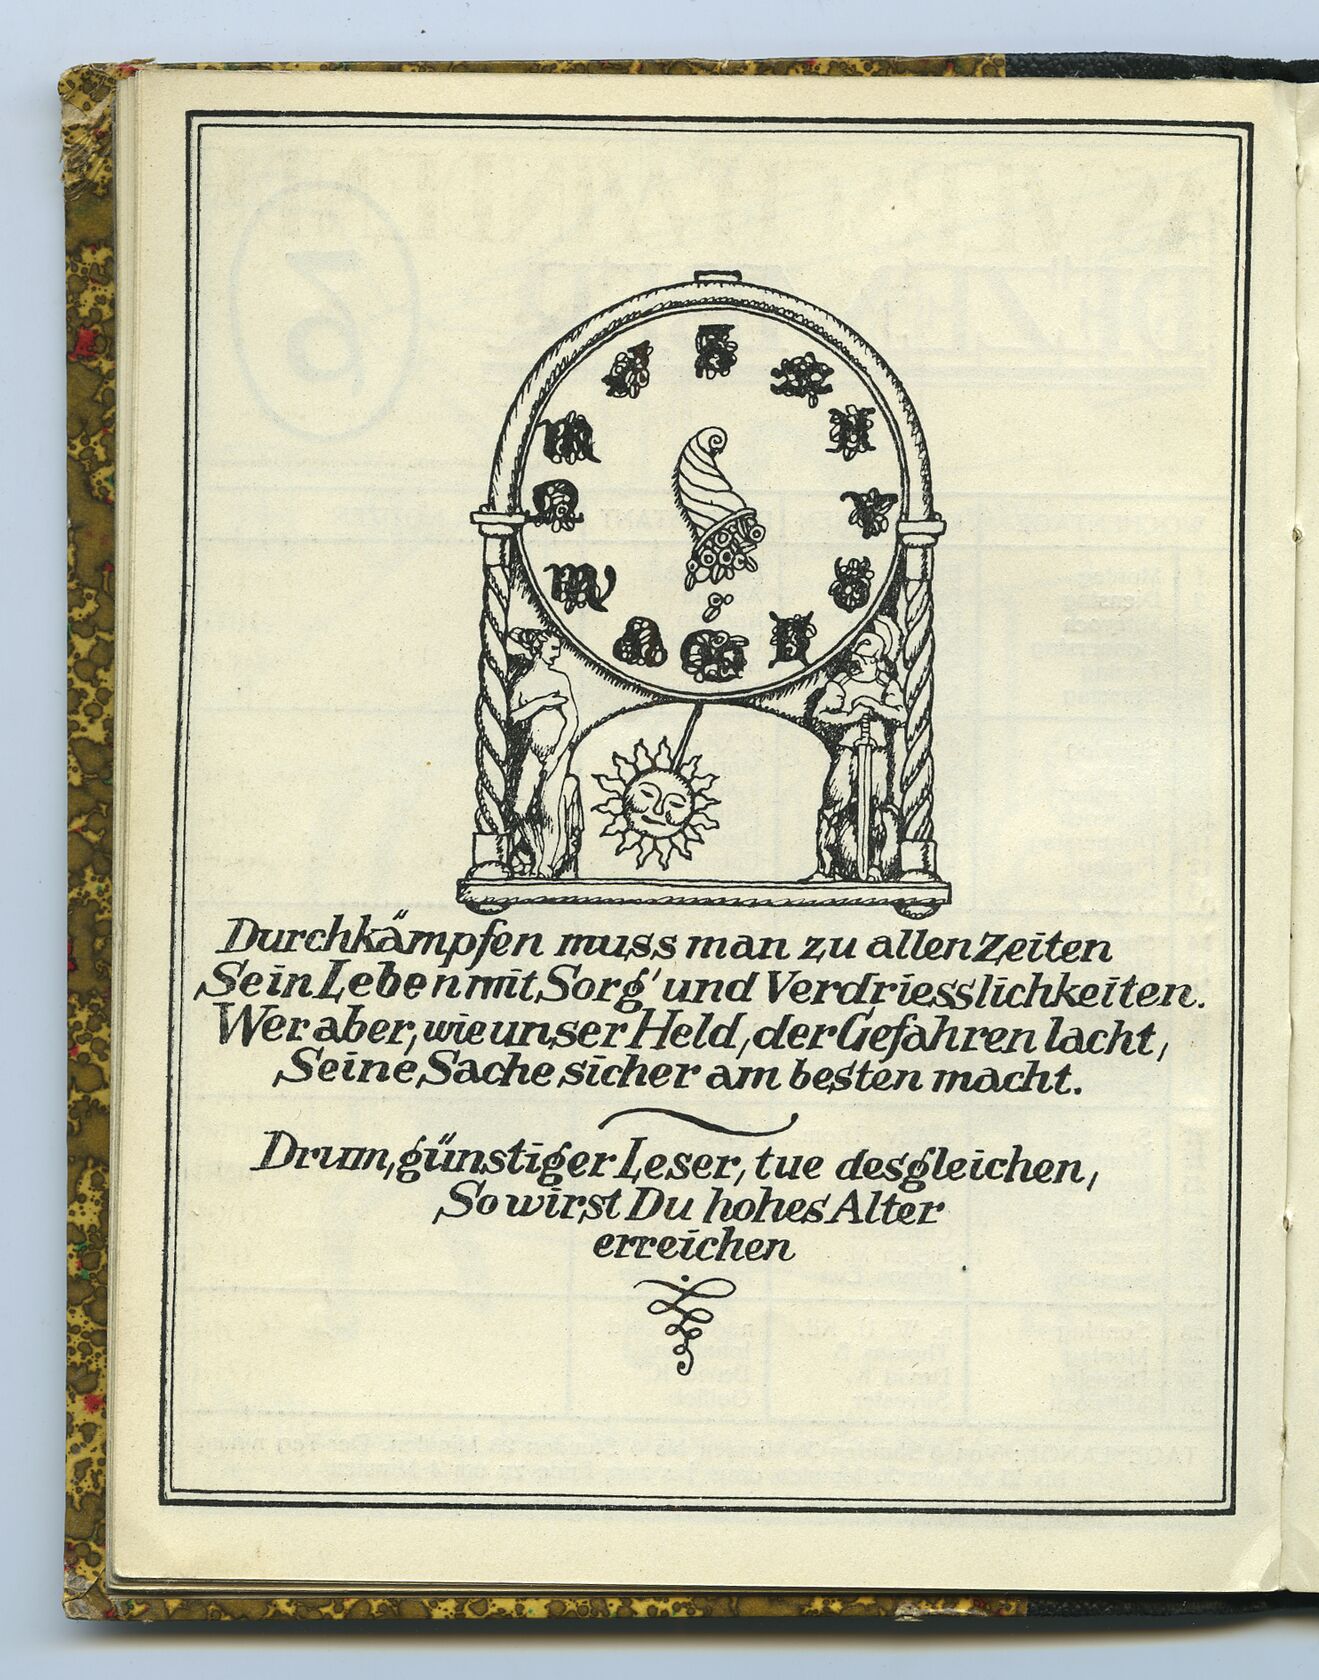 Durchkämpfen muss man zu allen Zeiten
Sein Leben mit Sorg' und Verdriesslichkeiten.
Wer aber, wie unser Held, der Gefahren lacht,
Seine Sache sicher am besten macht.
Drum, günstiger Leser, tue desgleichen,
So wirst Du hohes Alter
erreichen